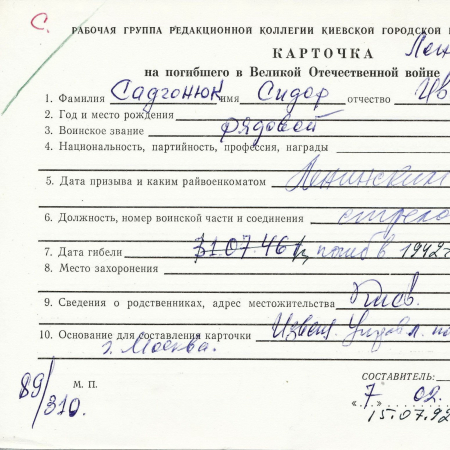 С.
РАБОЧАЯ ГРУППА РЕДАКЦИОННОЙ КОЛЛЕГИИ КИЕВСКОЙ ГОРОДСКОЙ
КАРТОЧКА
на погибшего в Великой Отечественной войне
1. Фамилия Садгонюк имя Сидор отчество Ив
2. Год и место рождения
3. Воинское звание рядовой
4. Национальность, партийность, профессия, награды
5. Дата призыва и каким райвоенкоматом Ленинским
6. Должность, номер воинской части и соединения стрело
7. Дата гибели 31.07.46 погиб в 1942г
8. Место захоронения
9. Сведения о родственниках, адрес местожительства Киев.
10. Основание для составления карточки Извещ. по
г. Москва.
М. П.
СОСТАВИТЕЛЬ:
89/310.
«7 02.
15.07.92